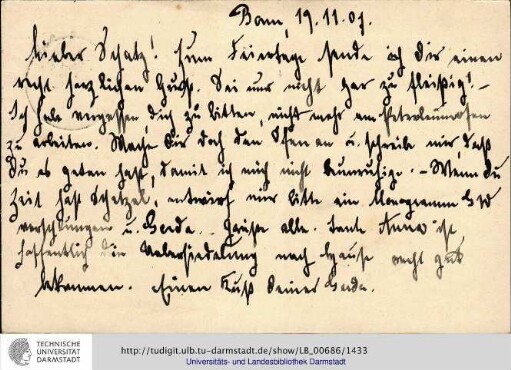 Bonn, 19.11.07.
Lieber Schatz! Zum Feiertage sende ich Dir einen
recht herzlichen Gruß. Sei nur nicht gar zu fleißig! –
Ich habe vergessen, Dich zu bitten, nicht mehr am Petroleumofen
zu arbeiten. Mache Dir doch den Ofen an u. schreibe mir, daß
Du es getan hast, damit ich mich nicht beunruhige. – Wenn Du
Zeit hast Schatzel, entwirf mir bitte ein Monogramm G W
verschlungen u. Gerda. Grüße alle. Tante Anna ist
hoffentlich die Uebersiedelung nach Hause recht gut
bekommen. Einen Kuß Deiner Gerda.
TECHNISCHE
UNIVERSITÄT
DARMSTADT
http://tudigit.ulb.tu-darmstadt.de/show/LB_00686/1433
Universitäts- und Landesbibliothek Darmstadt